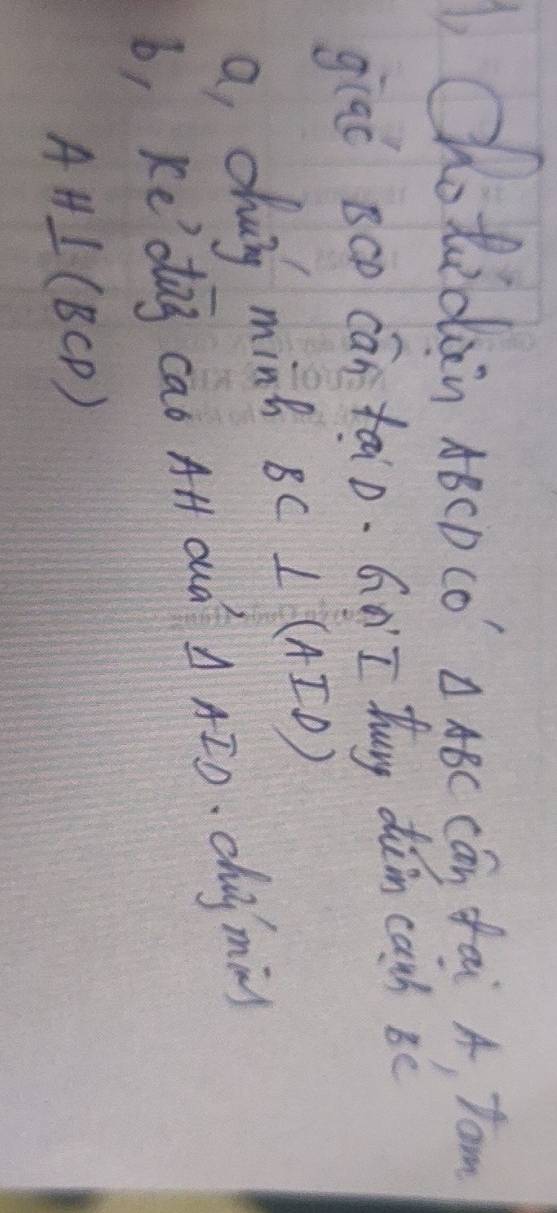 1, Cho tứ diện ABCD có Δ ABC cân tại A, Tam
giác BCD cân tại D. Gọi I trung điểm cạnh BC
a, chứng minh BC ⊥ (AID)
b, Kẻ đường cao AH của Δ AID. chứng minh
AH ⊥ (BCD)